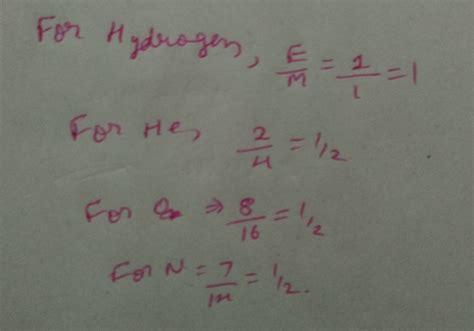 For Hydrogen, E/M = 1/1 = 1
For He, 2/4 = 1/2
For O ⇒ 8/16 = 1/2
For N = 7/14 = 1/2.